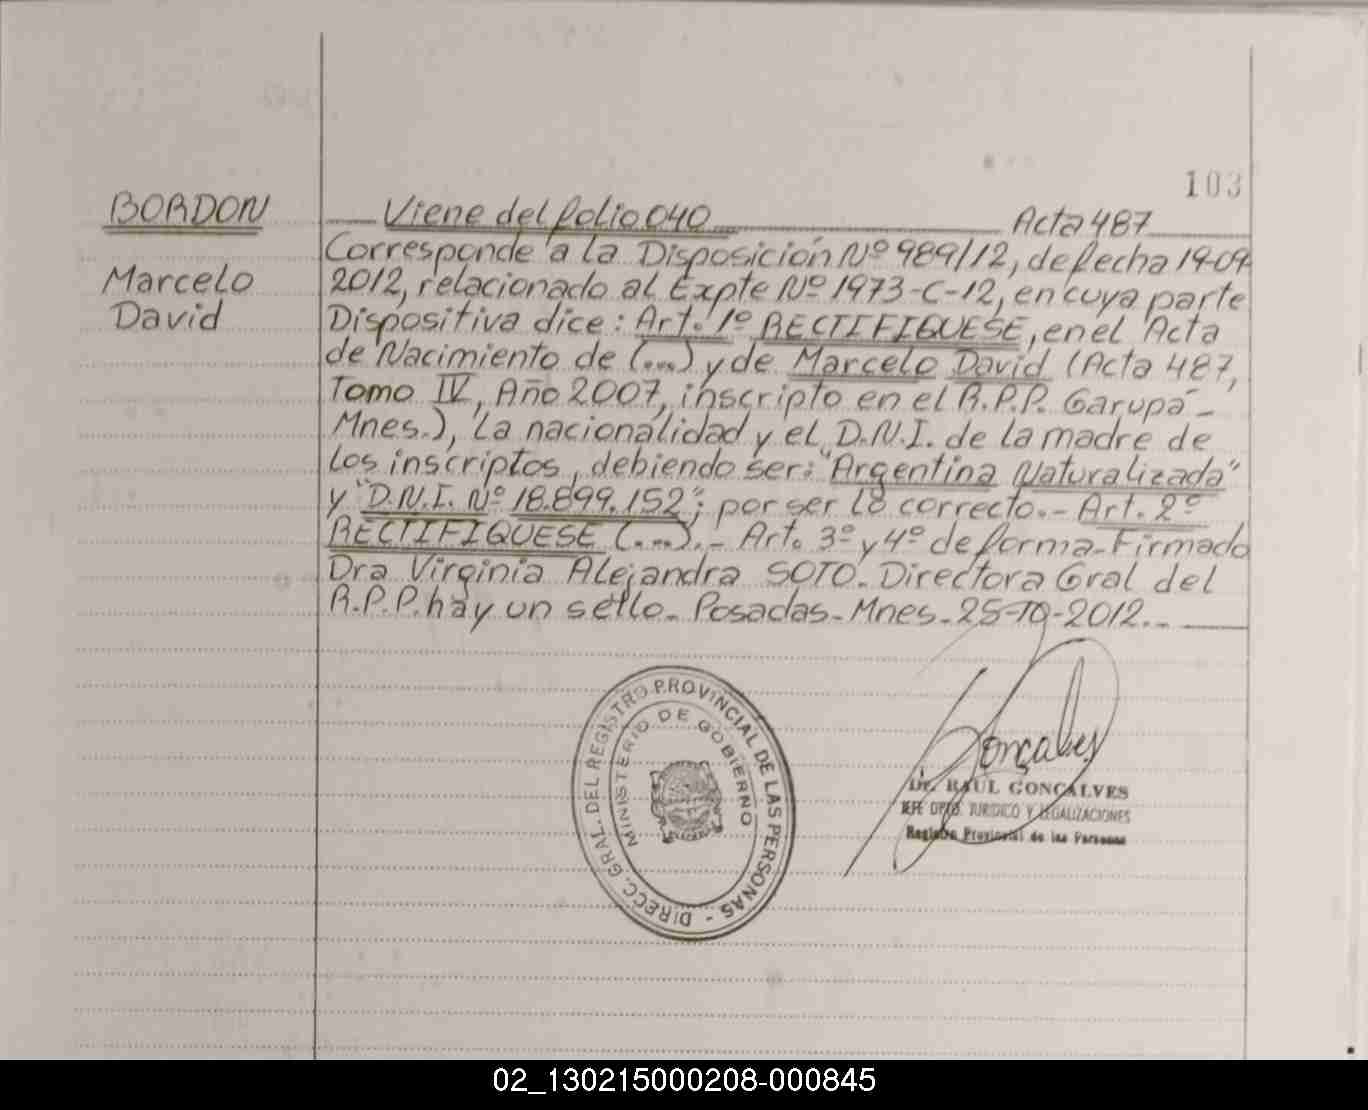 103
BORDON
Marcelo
David
Viene del folio 040 Acta 487
Corresponde a la Disposición Nº 989/12, de fecha 19-09-
2012, relacionado al Expte Nº 1973-C-12, en cuya parte
Dispositiva dice: Art. 1º RECTIFIQUESE, en el Acta
de Nacimiento de (...) y de Marcelo David (Acta 487,
Tomo IV, Año 2007, inscripto en el R.P.P. Garupá-
Mnes.), la nacionalidad y el D.N.I. de la madre de
los inscriptos, debiendo ser: "Argentina Naturalizada"
y "D.N.I. Nº 18.899.152"; por ser lo correcto.- Art. 2º
RECTIFIQUESE (...).- Art. 3º y 4º de forma-Firmado
Dra Virginia Alejandra SOTO. Directora Gral del
R.P.P. hay un sello- Posadas- Mnes- 25-10-2012.-
DIRECC. GRAL. DEL REGISTRO PROVINCIAL DE LAS PERSONAS -
MINISTERIO DE GOBIERNO
Gonçalves
Dr. RAUL GONÇALVES
JEFE DPTO. JURIDICO Y LEGALIZACIONES
Registro Provincial de las Personas
02_130215000208-000845